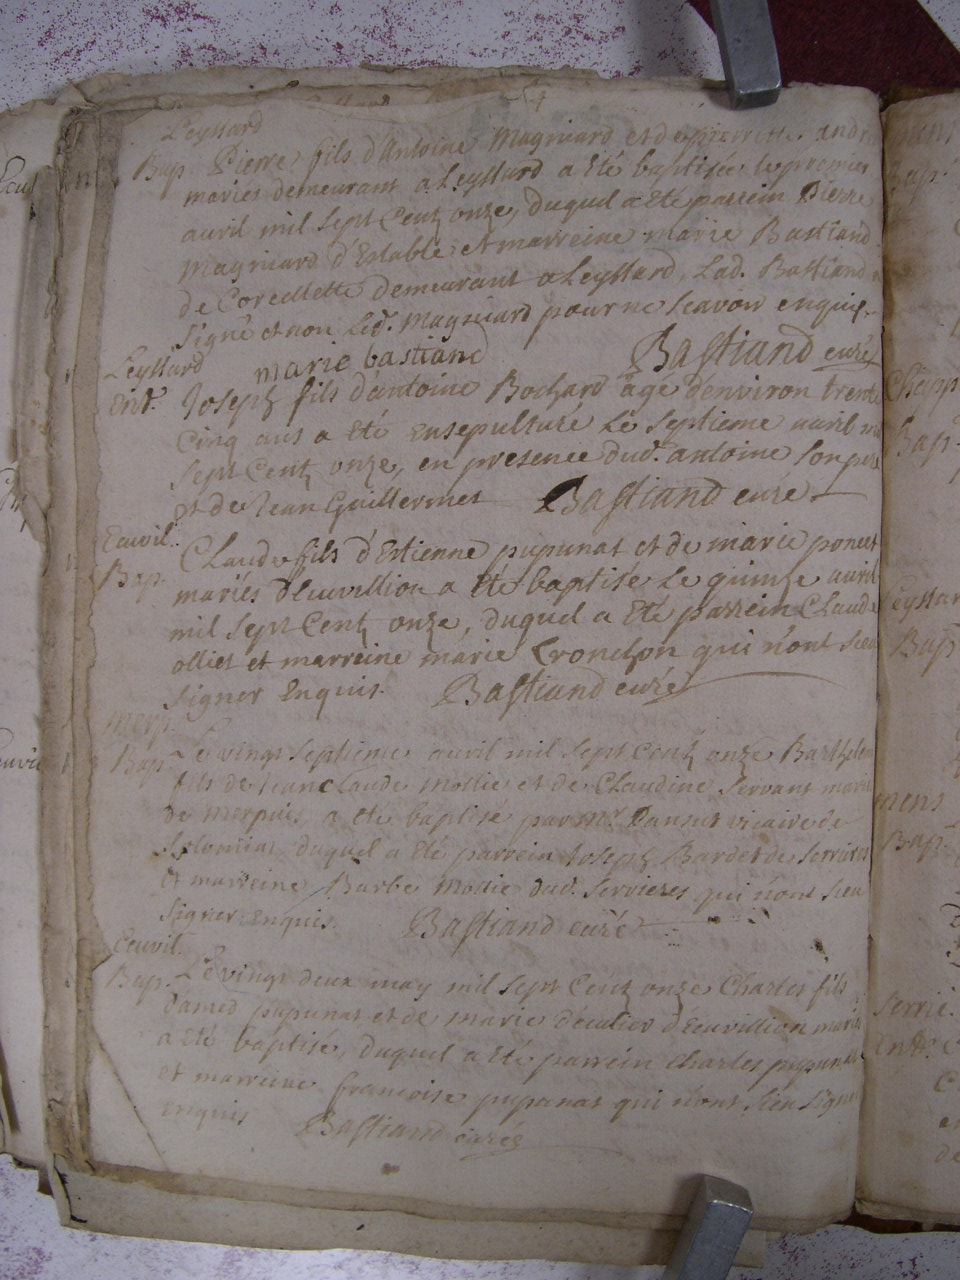 Leyssard
Bap. Pierre fils d'Antoine Magniard et de pierrette andr
mariés demeurant a Leyssard a eté baptisée le premier
avril mil sept Centz onze, duquel a eté parrein Pierre
Magniard d'Estable et marreine marie Bastiand
de Corcellette demeurant a Leyssard, Lad. Bastiand
signé et non Led. Magniard pour ne scavoir enquis.
marie bastiand Bastiand curé
Leyssard
Entt. Joseph fils d'antoine Bochard âgé denviron trente
Cinq ans a eté ensepulturé Le septieme avril mi
sept Centz onze, en presence dud. antoine son pere
et de Jean Guillermet Bastiand curé
Ecuvil.
Bap. Claude fils d'Estienne pupunat et de marie poncet
mariés d'Ecuvillion a eté baptisé Le quinze avril
mil sept Centz onze, duquel a eté parrein Claude
olliet et marreine marie Tronchon qui n'ont sceu
signer Enquis. Bastiand curé
Merp.
Bap. Le vingt septieme avril mil sept centz onze Barthele
fils de Jean Claude Mollie et de Claudine Servant mariés
de Merpuis a eté baptisé par Mr. vicaire de
Solomiat duquel a eté parrein Joseph Bardet de Serrieres
et marreine Barbe Mollie dud. Serrieres qui n'ont sceu
signer Enquis. Bastiand curé
Ecuvil.
Bap. Le vingt deux may mil sept Centz onze Charles fils
d'amed pupunat et de marie d'Ecuvillion mariés
a eté baptisé, duquel a eté parrein Charles pupunat
et marreine francoise pupunat qui n'ont sceu signer
enquis Bastiand curé